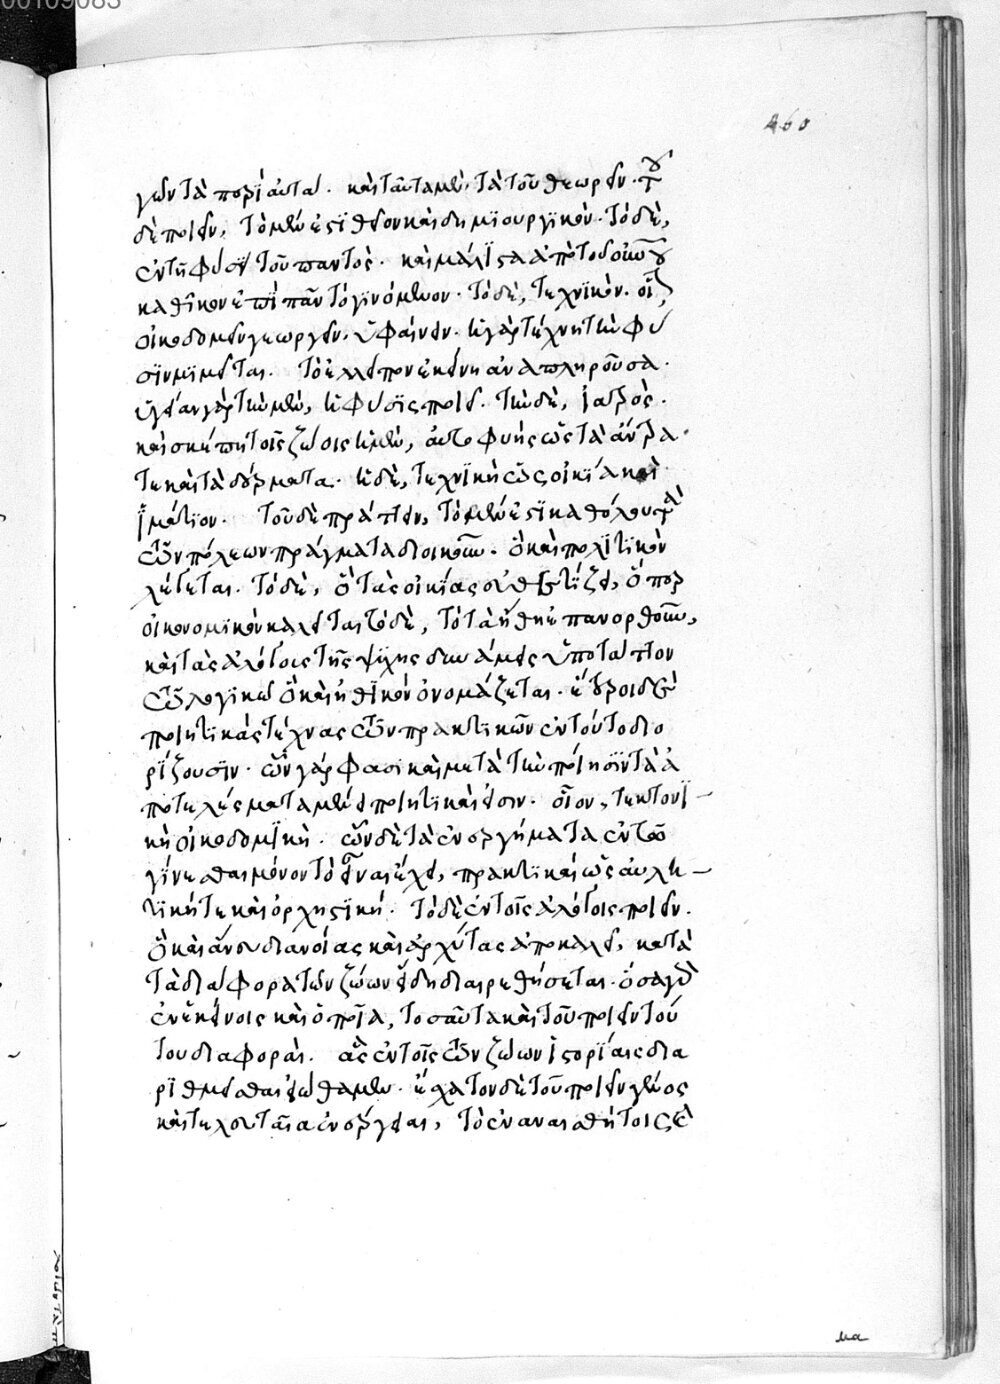 00109083
460
γων τὰ περὶ αὐτά. καὶ ταῦτα μὲν, τὰ τοῦ θεωρεῖν. τοῦ
δὲ ποιεῖν, τὸ μὲν ἐστὶ θεῖον καὶ δημιουργικὸν. τὸ δὲ,
ἐν τῇ φύσει τοῦ παντὸς. καὶ μάλιστα ἀπὸ τοῦ
καθῆκον ἐπὶ πᾶν τὸ γινόμενον. τὸ δὲ, τεχνικὸν. οἷον
οἰκοδομεῖν γεωργεῖν, ὑφαίνειν. ἡ γὰρ τέχνη τὴν φύ
σιν μιμεῖται. τὸ ἐλλεῖπον ἐκείνη ἀναπληροῦσα.
ὑγείαν γὰρ τὴν μὲν, ἡ φύσις ποιεῖ. τὴν δὲ, ἰατρὸς.
καὶ σκέπη τοῖς ζώοις ἡ μὲν, αὐτοφυὴς ὡς τὰ ἄντρα
τε καὶ τὰ δέρματα. ἡ δὲ, τεχνικὴ ὡς οἰκία καὶ
ἱμάτιον. τοῦ δὲ πράττειν, τὸ μὲν ἐστὶ καθόλου τὰ
τῶν πόλεων πράγματα διοικοῦν. ὃ καὶ πολιτικὸν
λέγεται. τὸ δὲ, ὃ τὰς οἰκίας εὐθετίζει, ὅπερ
οἰκονομικὸν καλεῖται τὸ δὲ, τὸ τὰ ἤθη ἐπανορθοῦν,
καὶ τὰς ἀλόγους τῆς ψυχῆς δυνάμεις ὑποτάττον
τῷ λογικῷ ὃ καὶ ἠθικὸν ὀνομάζεται. ἕτεροι δὲ
ποιητικὰς τέχνας τῶν πρακτικῶν ἐν τούτῳ διο
ρίζουσιν. ὧν γάρ φασι καὶ μετὰ τὴν ποίησιν τὰ ἀ
ποτελέσματα μένει ποιητικαὶ εἰσιν. οἷον, τεκτονι-
κὴ οἰκοδομική. ὧν δὲ τὰ ἐνεργήματα ἐν τῷ
γίνεσθαι μόνον τὸ εἶναι ἔχει, πρακτικαὶ ὡς αὐλη-
τική τε καὶ ὀρχηστική. τὸ δὲ ἐν τοῖς ἀλόγοις ποιεῖν.
ὃ καὶ ἄνευ διανοίας καὶ ἀρχύτας ἀποκαλεῖ, κατὰ
τὰ διάφορα τῶν ζώων εἴδη διαιρεθήσεται. ὅσα γὰρ
ἐν ἐκείνοις καὶ ὁποῖα, τοσαῦτα καὶ τοῦ ποιεῖν τού
του διαφοραί. ἃς ἐν τοῖς τῶν ζώων ἱστορίαις δια
ριθμεῖσθαι εἰώθαμεν. ἔσχατον δὲ τοῦ ποιεῖν γένος
καὶ τελευταία ἐνέργεια, τὸ ἐν ἀναισθήτοις ἐ
μα